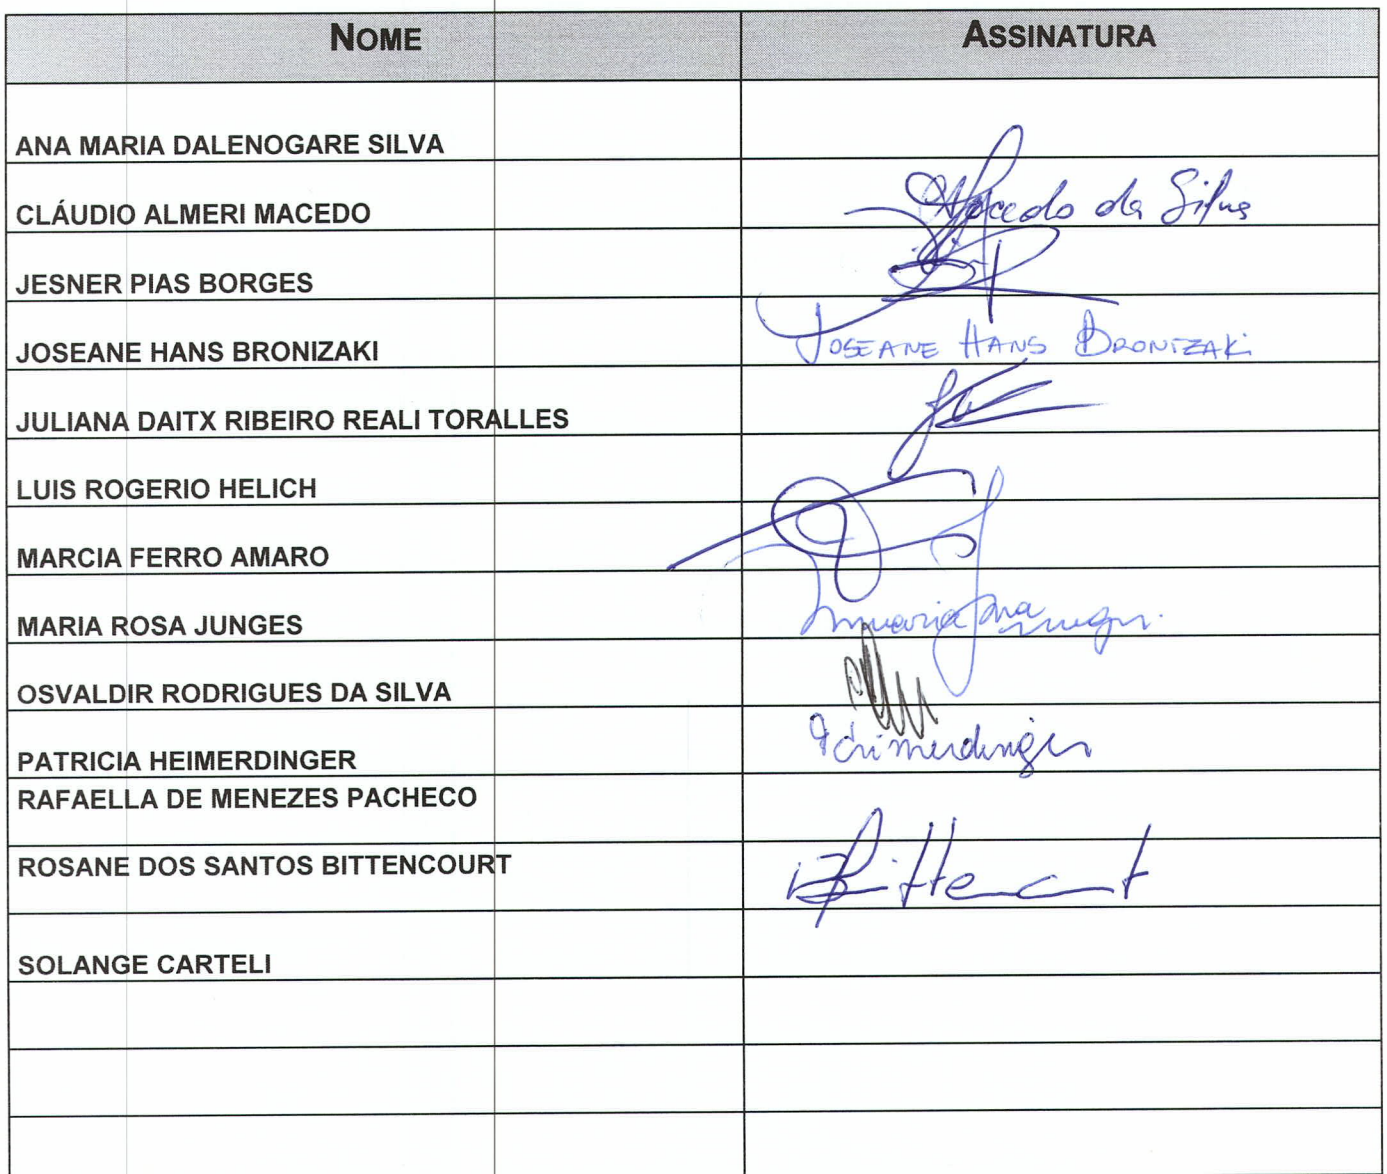 NOME ASSINATURA
ANA MARIA DALENOGARE SILVA
CLÁUDIO ALMERI MACEDO Macedo da Silva
JESNER PIAS BORGES
JOSEANE HANS BRONIZAKI JOSEANE HANS BRONIZAKI
JULIANA DAITX RIBEIRO REALI TORALLES
LUIS ROGERIO HELICH
MARCIA FERRO AMARO
MARIA ROSA JUNGES Maria
OSVALDIR RODRIGUES DA SILVA
PATRICIA HEIMERDINGER Heimerdinger
RAFAELLA DE MENEZES PACHECO
ROSANE DOS SANTOS BITTENCOURT Bittencourt
SOLANGE CARTELI